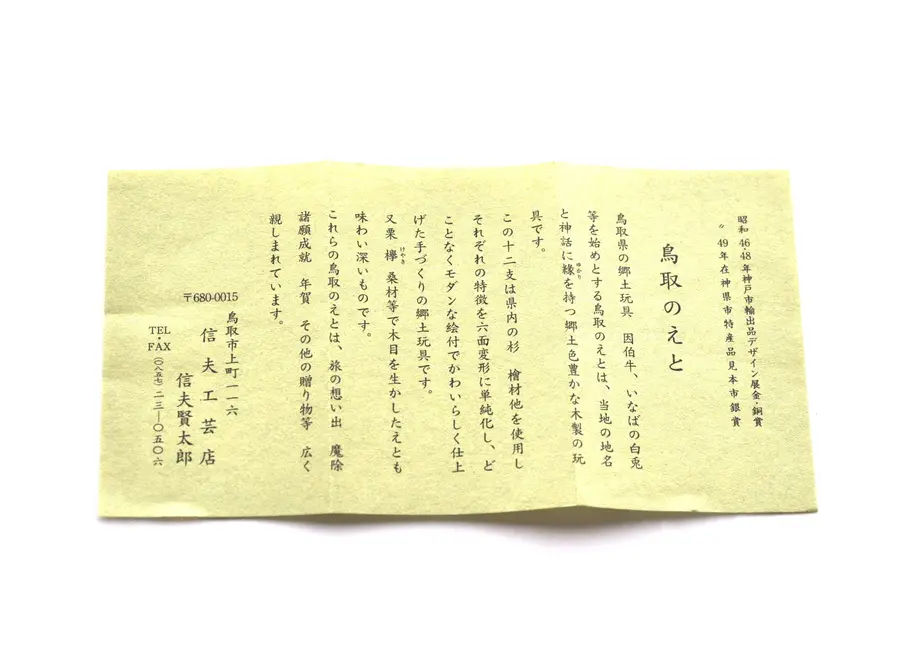 昭和46・48年神戸市輸出品デザイン展金・銅賞
〃 49年在神県市特産品見本市銀賞
鳥取のえと
鳥取県の郷土玩具 因伯牛、いなばの白兎
等を始めとする鳥取のえとは、当地の地名
と神話に縁ゆかりを持つ郷土色豊かな木製の玩
具です。
この十二支は県内の杉 檜材他を使用し
それぞれの特徴を六面変形に単純化し、ど
ことなくモダンな絵付でかわいらしく仕上
げた手づくりの郷土玩具です。
又栗 欅けやき 桑材等で木目を生かしたえとも
味わい深いものです。
これらの鳥取のえとは、旅の想い出 魔除
諸願成就 年賀 その他の贈り物等 広く
親しまれています。
〒680-0015
鳥取市上町一一六
信夫工芸店
信夫賢太郎
TEL・FAX (〇八五七)二三―〇五〇六